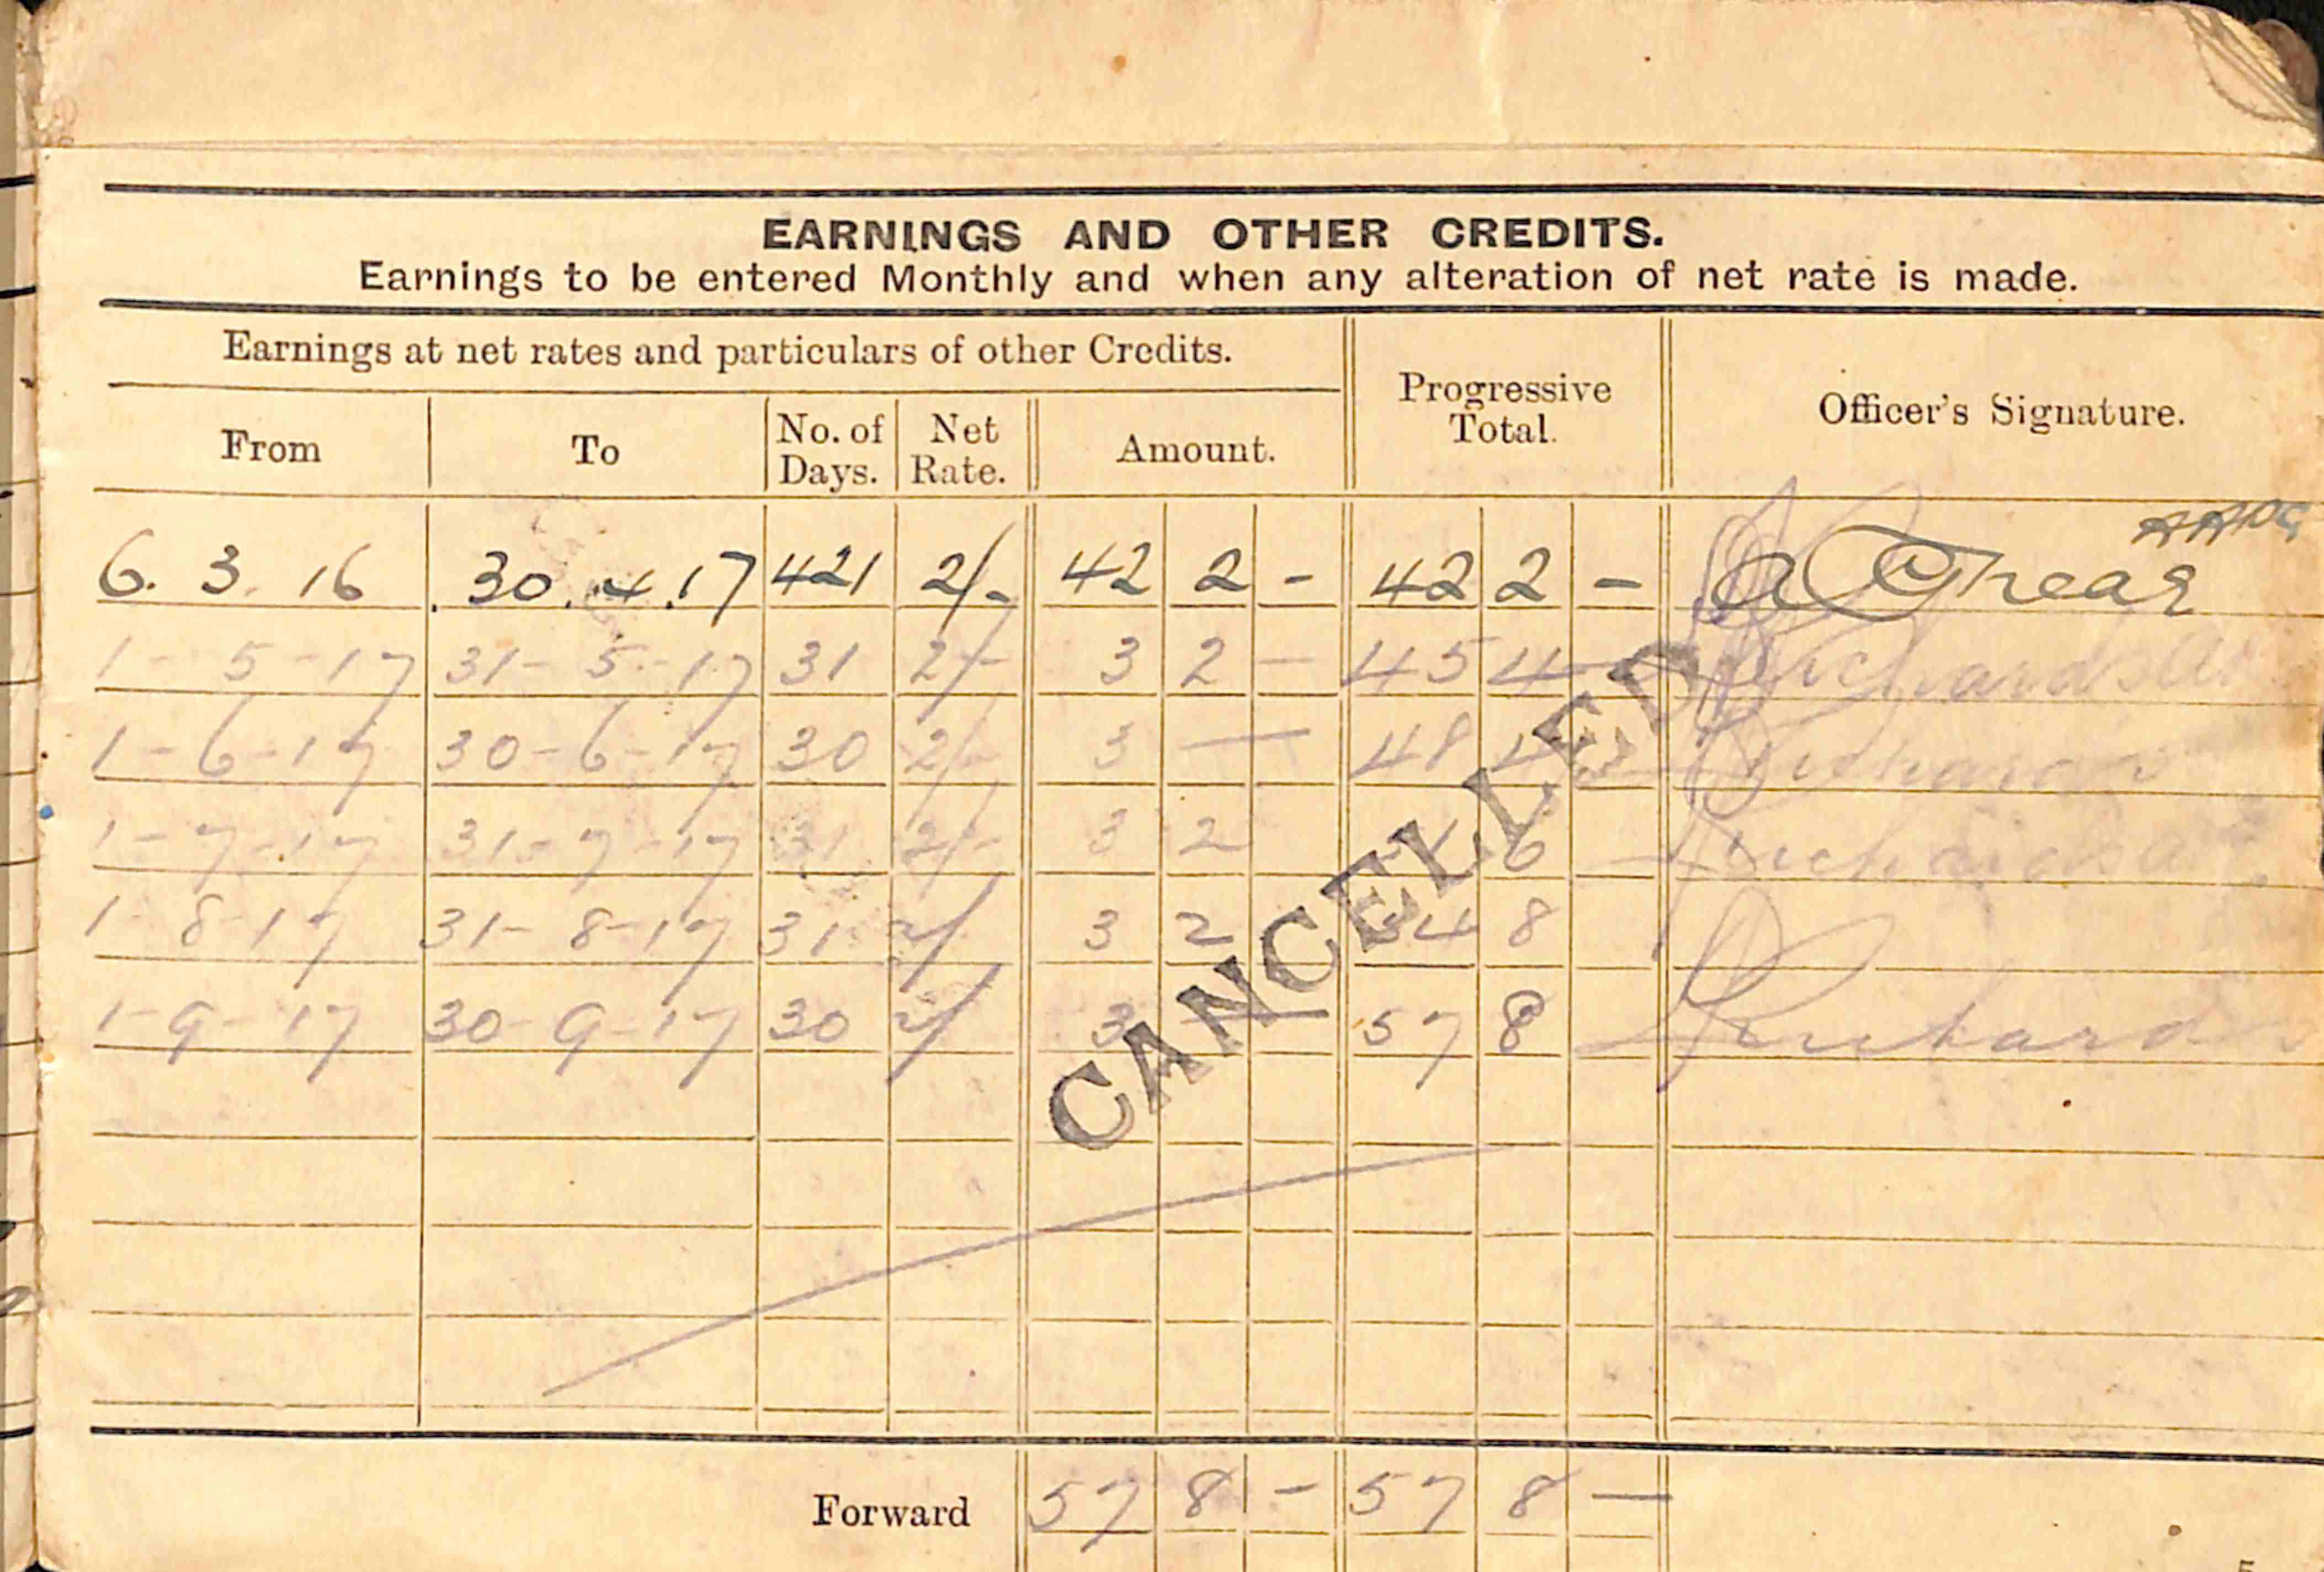 EARNINGS AND OTHER CREDITS.
Earnings to be entered Monthly and when any alteration of net rate is made.
Earnings at net rates and particulars of other Credits.
Progressive Total.
Officer's Signature.
From To No. of Days. Net Rate. Amount.
6. 3. 16 30.4.17 421 2/- 42 2 - 42 2 -
1-5-17 31-5-17 31 2/- 3 2 — 45 4 — Richardson
1-6-17 30-6-17 30 2/- 3 — 48 4 —
1-7-17 31-7-17 31 2/- 3 2 6 Richardson
1-8-17 31-8-17 31 2/ 3 2 54 8
1-9-17 30-9-17 30 2/ 3 — 57 8
CANCELLED
Forward 57 8 - 57 8 —